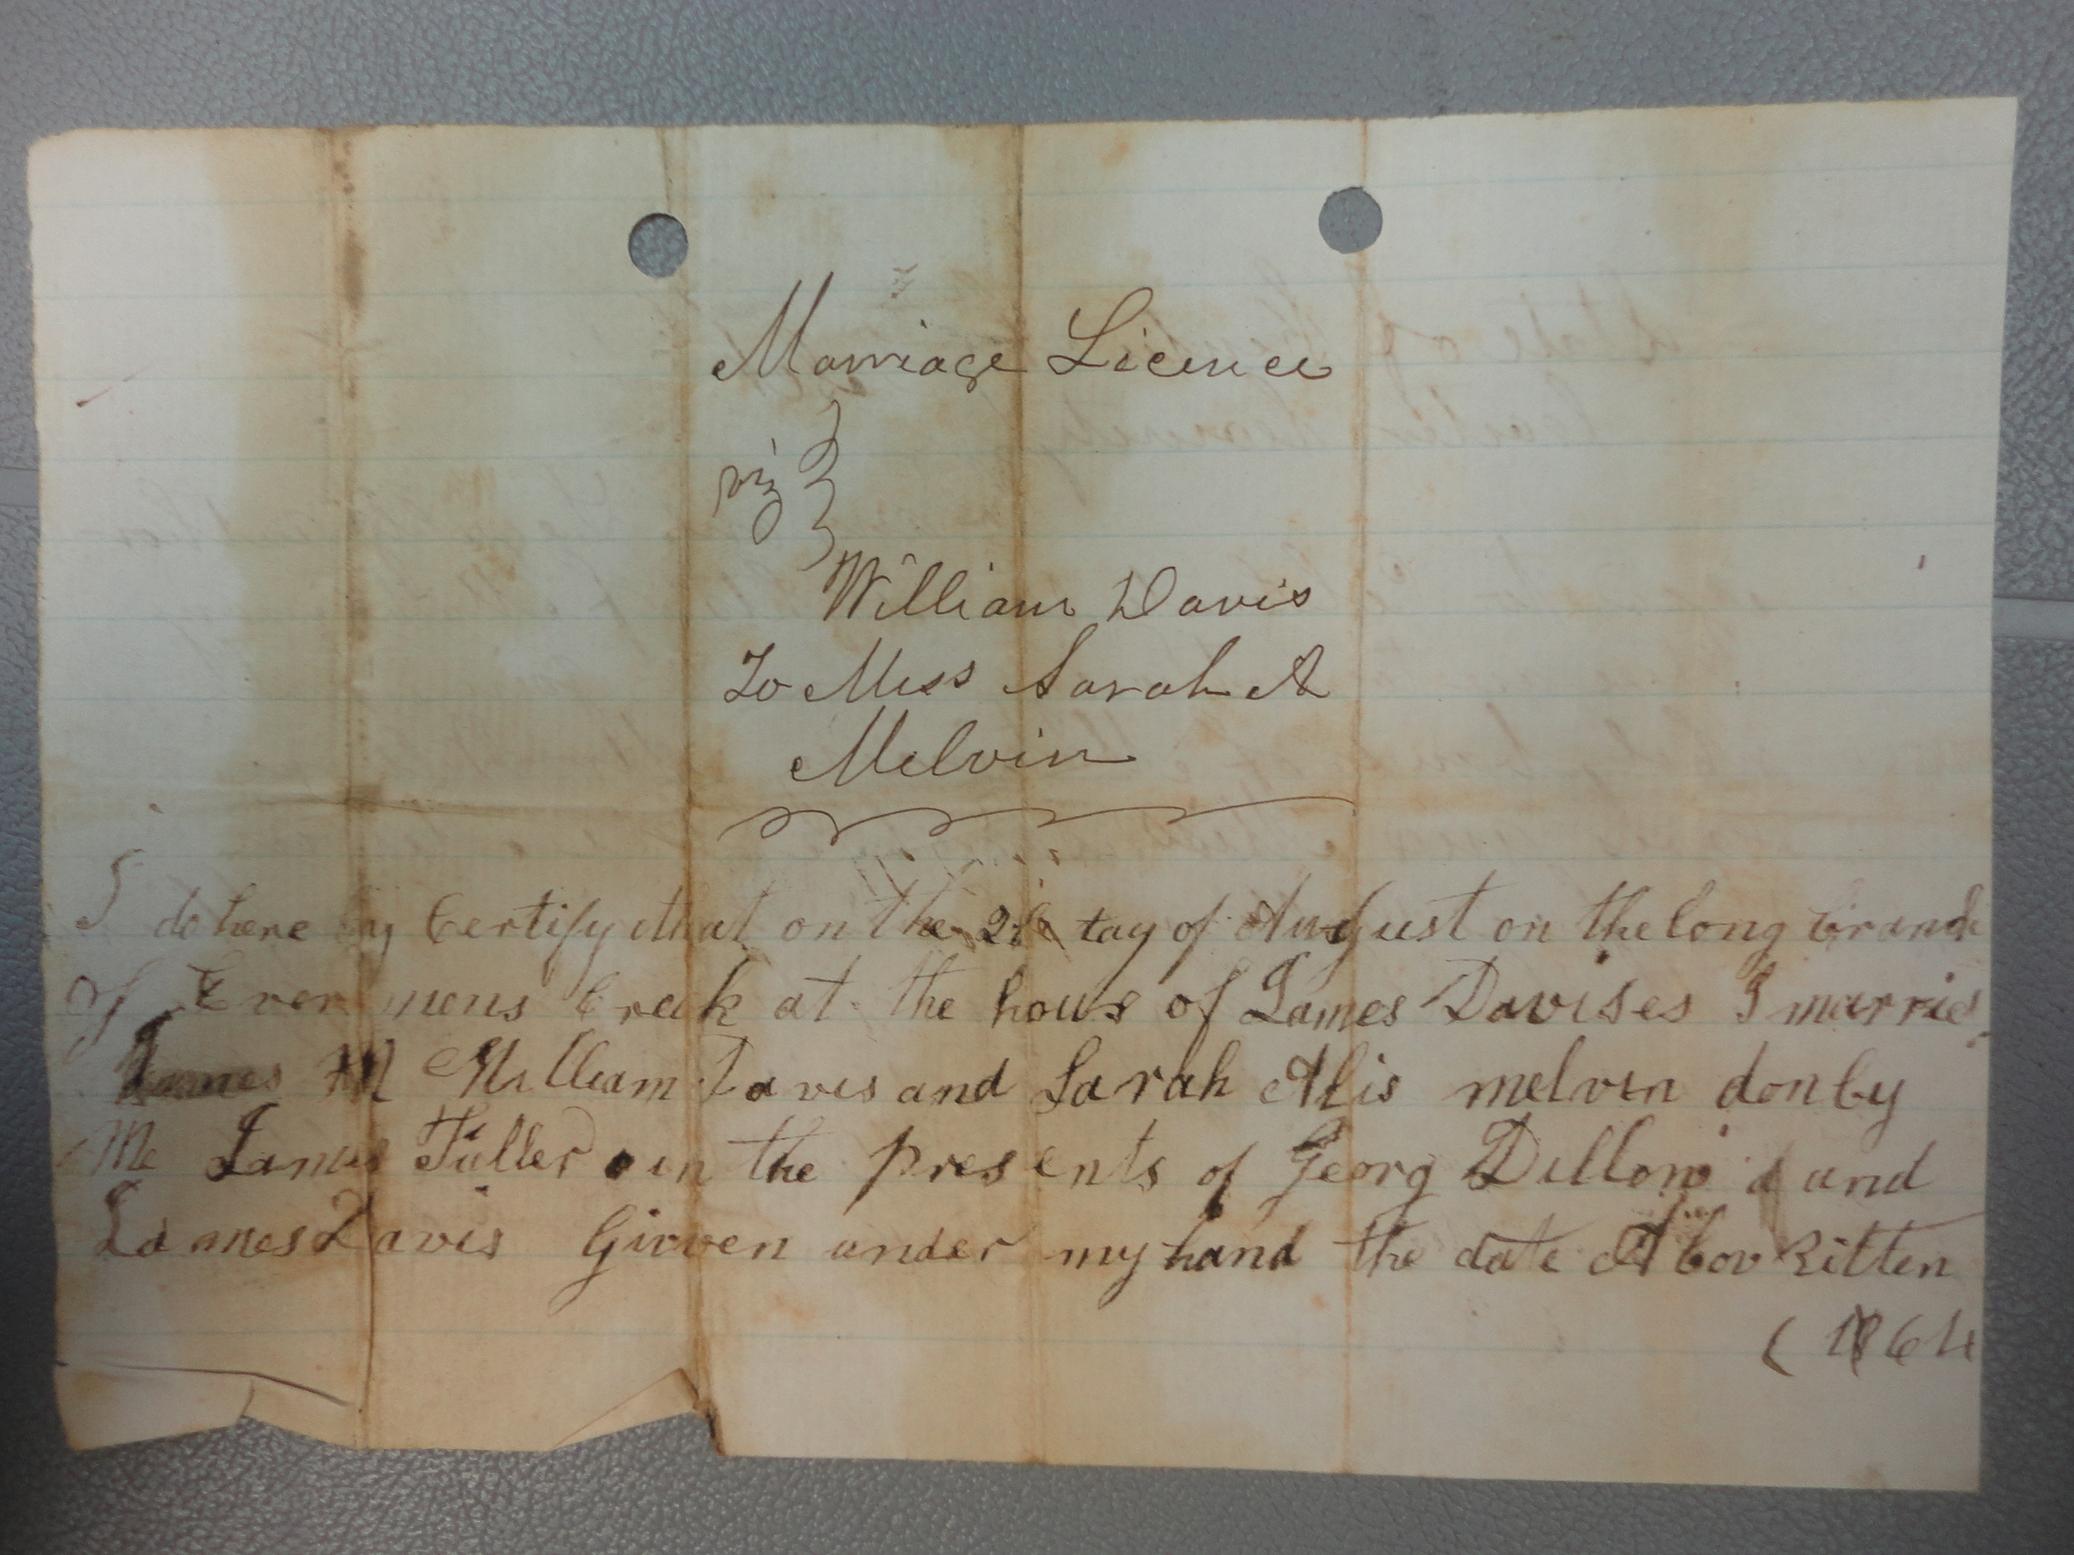 Marriage Licence
viz
William Davis
To Miss Sarah A
Melvin
I do here by Certify that on the tay of August on the long branch
of Evermens Creek at the hous of James Davises I marrie
James M William Davis and Sarah Alis melvin don by
Me James Fuller in the presents of Georg Dillon and
James Davis Givven under my hand the date Abov Ritten
(1864